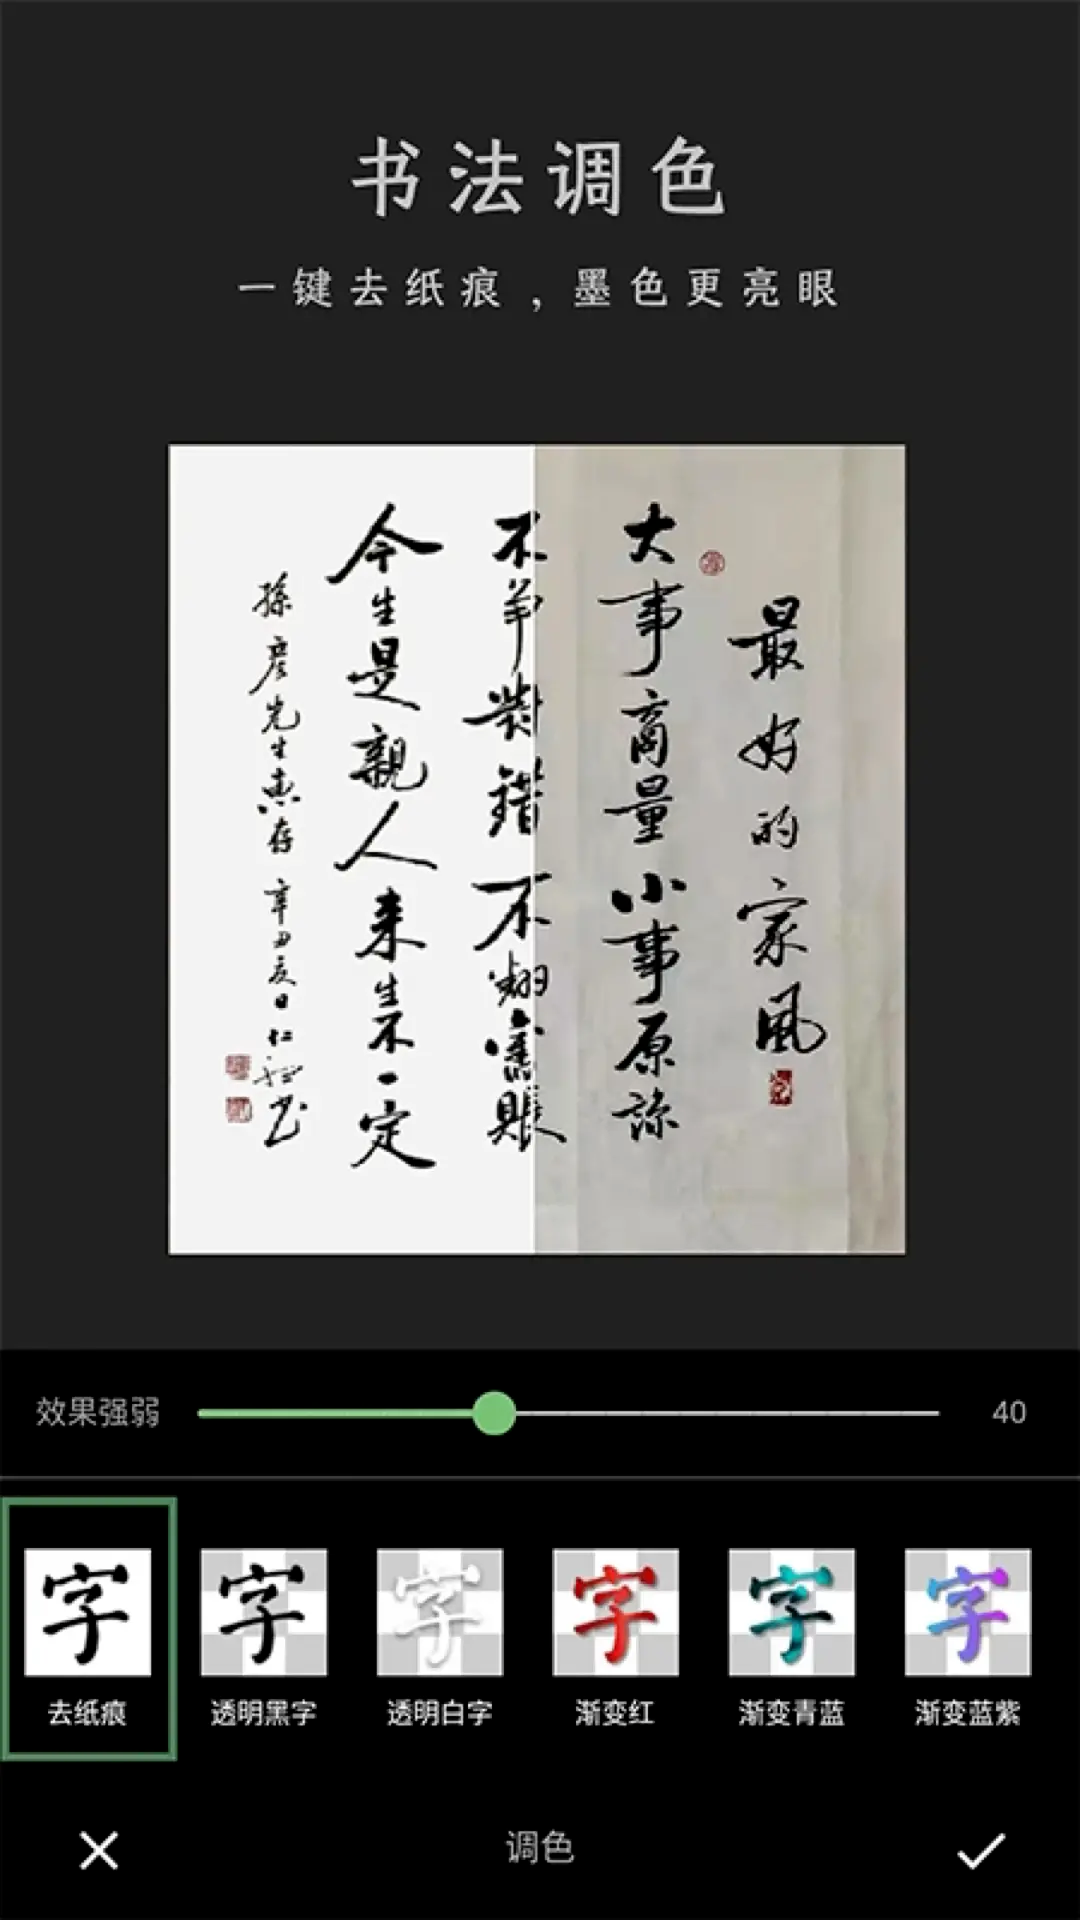 书法调色
一键去纸痕，墨色更亮眼
最好的家風
大事商量小事原諒
不争對錯不翻舊賬
今生是親人来生不一定
孫彦先生惠存 辛丑夏日 仁
效果强弱
40
字 字 字 字 字 字
去纸痕 透明黑字 透明白字 渐变红 渐变青蓝 渐变蓝紫
调色